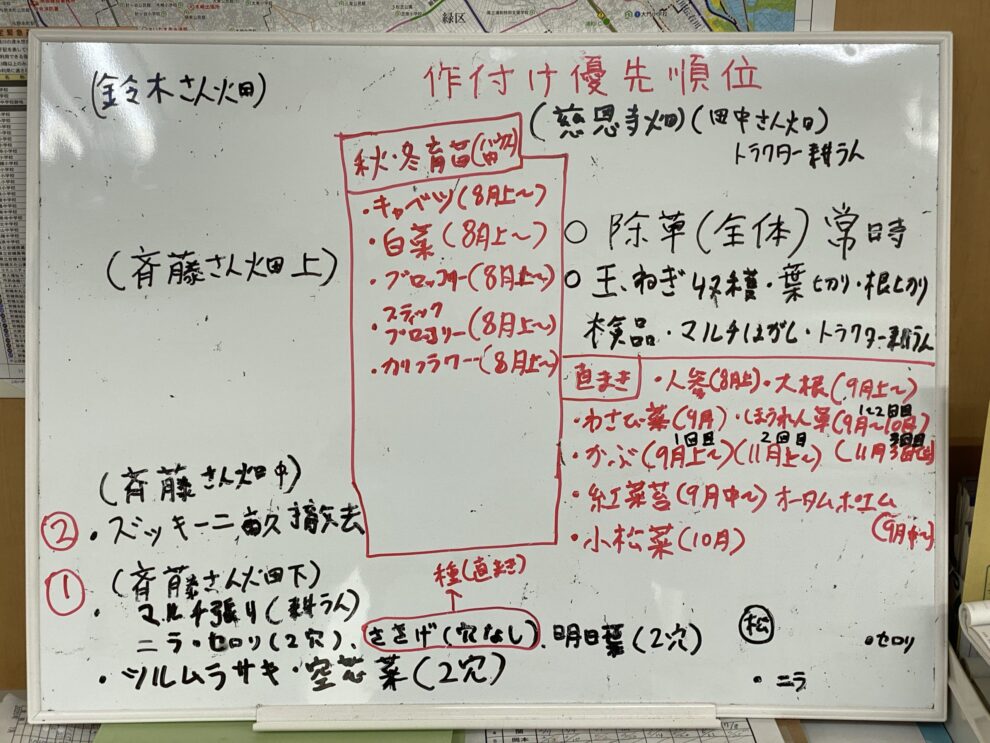 作付け優先順位
(鈴木さん畑)
(慈恩寺畑)(田中さん畑)
トラクター耕うん
秋・冬育苗(畄穴)
・キャベツ(8月上〜)
・白菜(8月上〜)
・ブロッコリー(8月上〜)
・スティック
ブロッコリー(8月上〜)
・カリフラワー(8月上〜)
(斉藤さん畑上)
○除草(全体)常時
○玉ねぎ収穫・葉切り・根切り
検品・マルチはがし・トラクター耕うん
直まき
・人参(8月上)・大根(9月上〜)
・わさび菜(9月)・ほうれん草(9月〜10月)
1〜2回目
・かぶ(9月上〜)(11月上〜)
1回目
2回目
・紅菜苔(9月中〜)オータムポエム
(9月中〜)
・小松菜(10月)
(斉藤さん畑中)
②・ズッキーニ畝撤去
① (斉藤さん畑下)
・マルチ張り(耕うん)
ニラ・セロリ(2穴)、ささげ(穴なし)、明日葉(2穴)
種(直まき)
・ツルムラサキ・空芯菜(2穴)
松
・セロリ
・ニラ